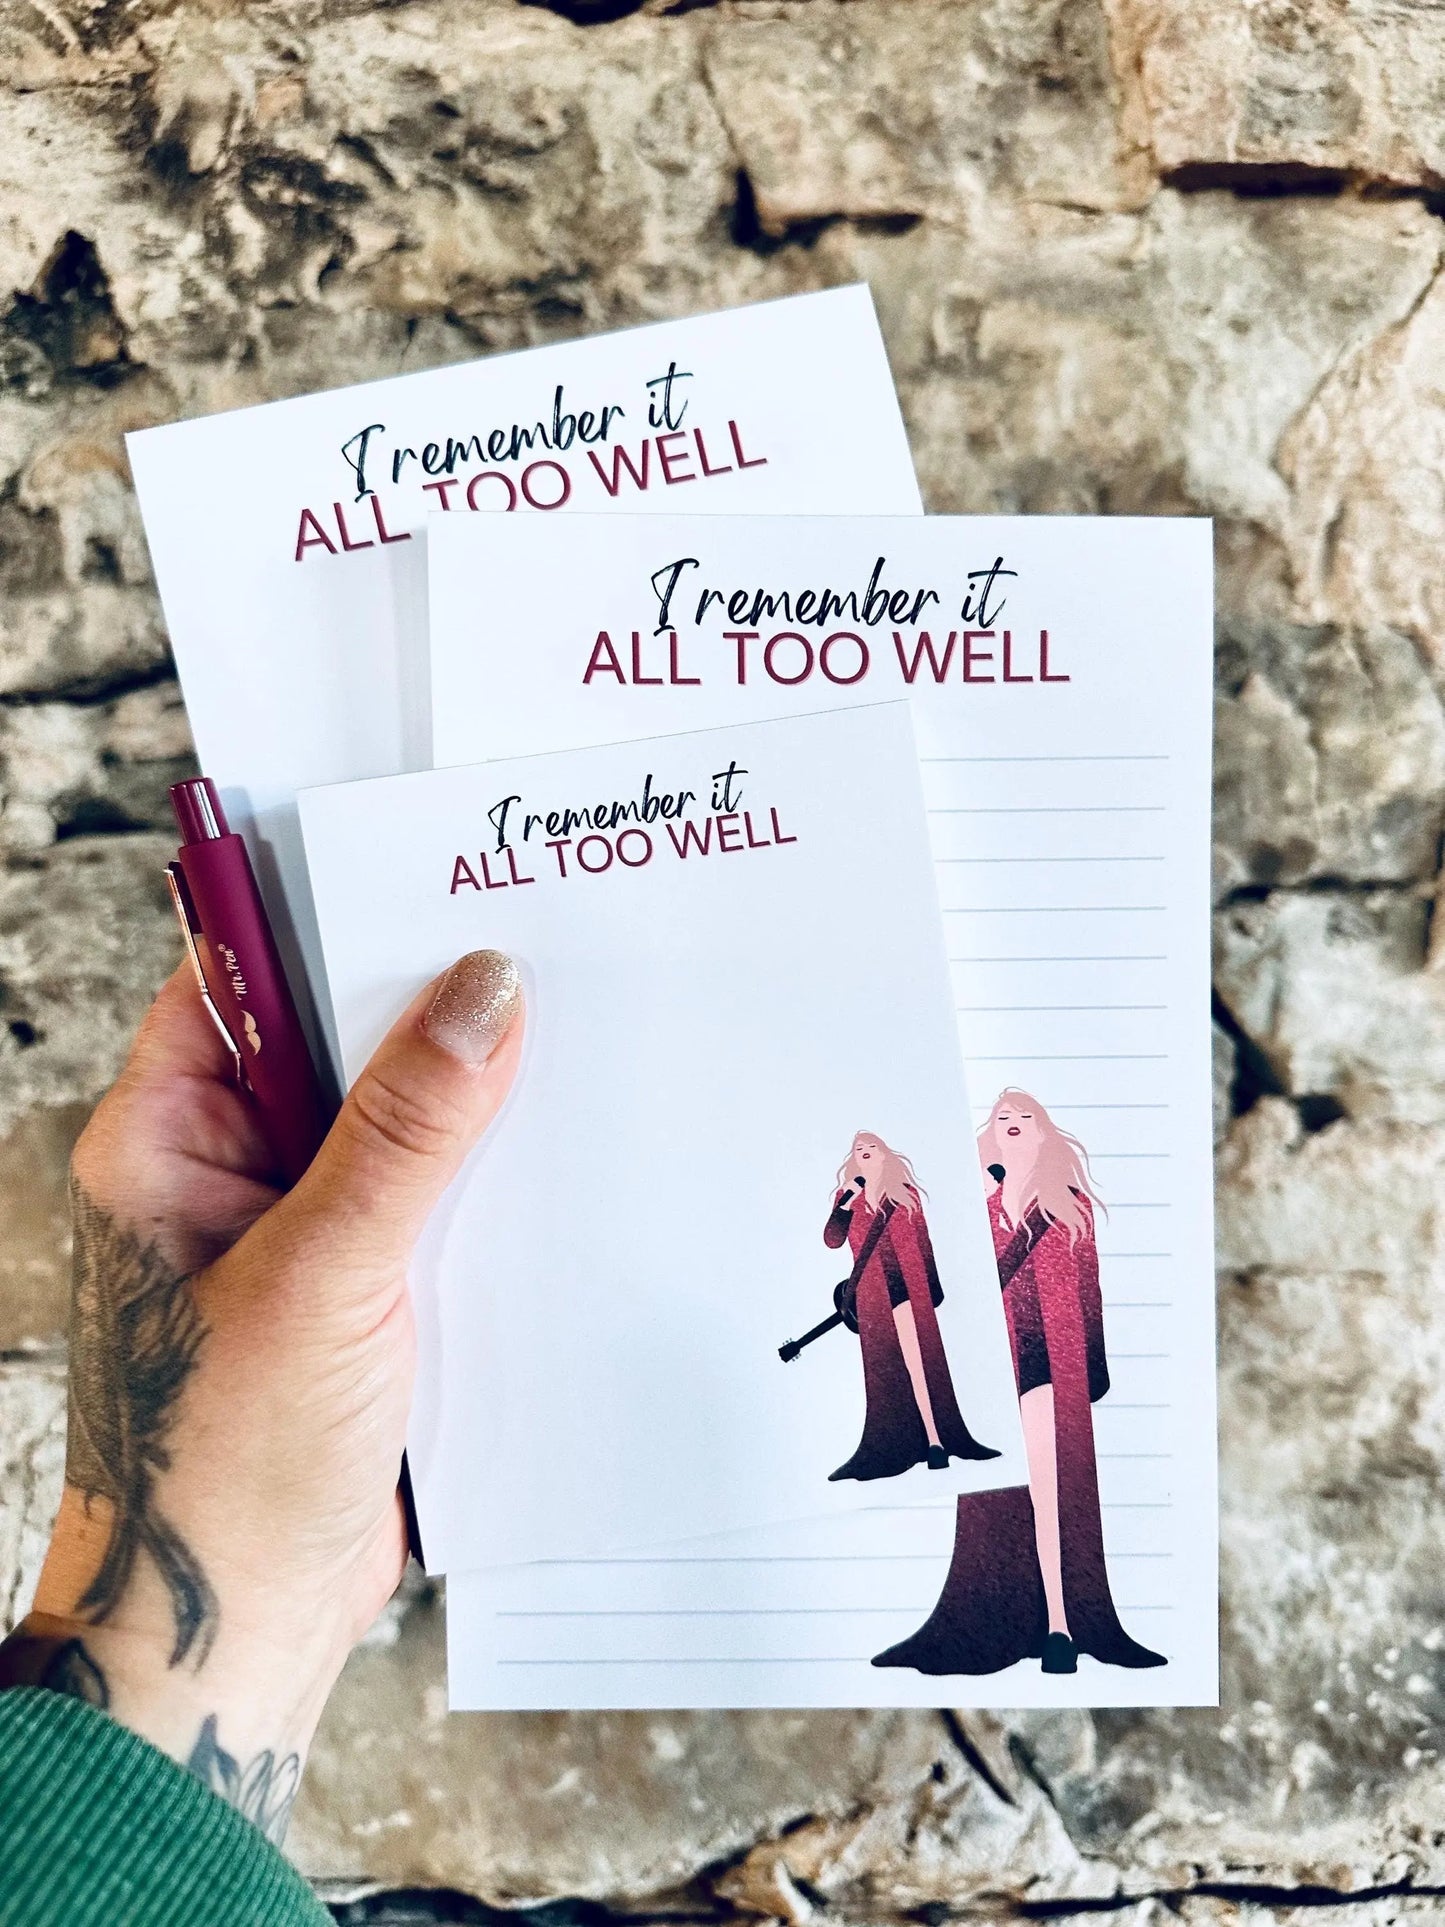 I remember it
ALL TOO WELL
I remember it
ALL TOO WELL
I remember it
ALL TOO WELL
Mr. Pen®